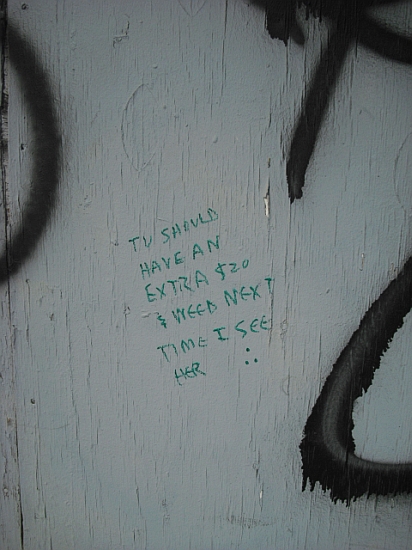 TV SHOULD
HAVE AN
EXTRA $20
& WEED NEXT
TIME I SEE
HER